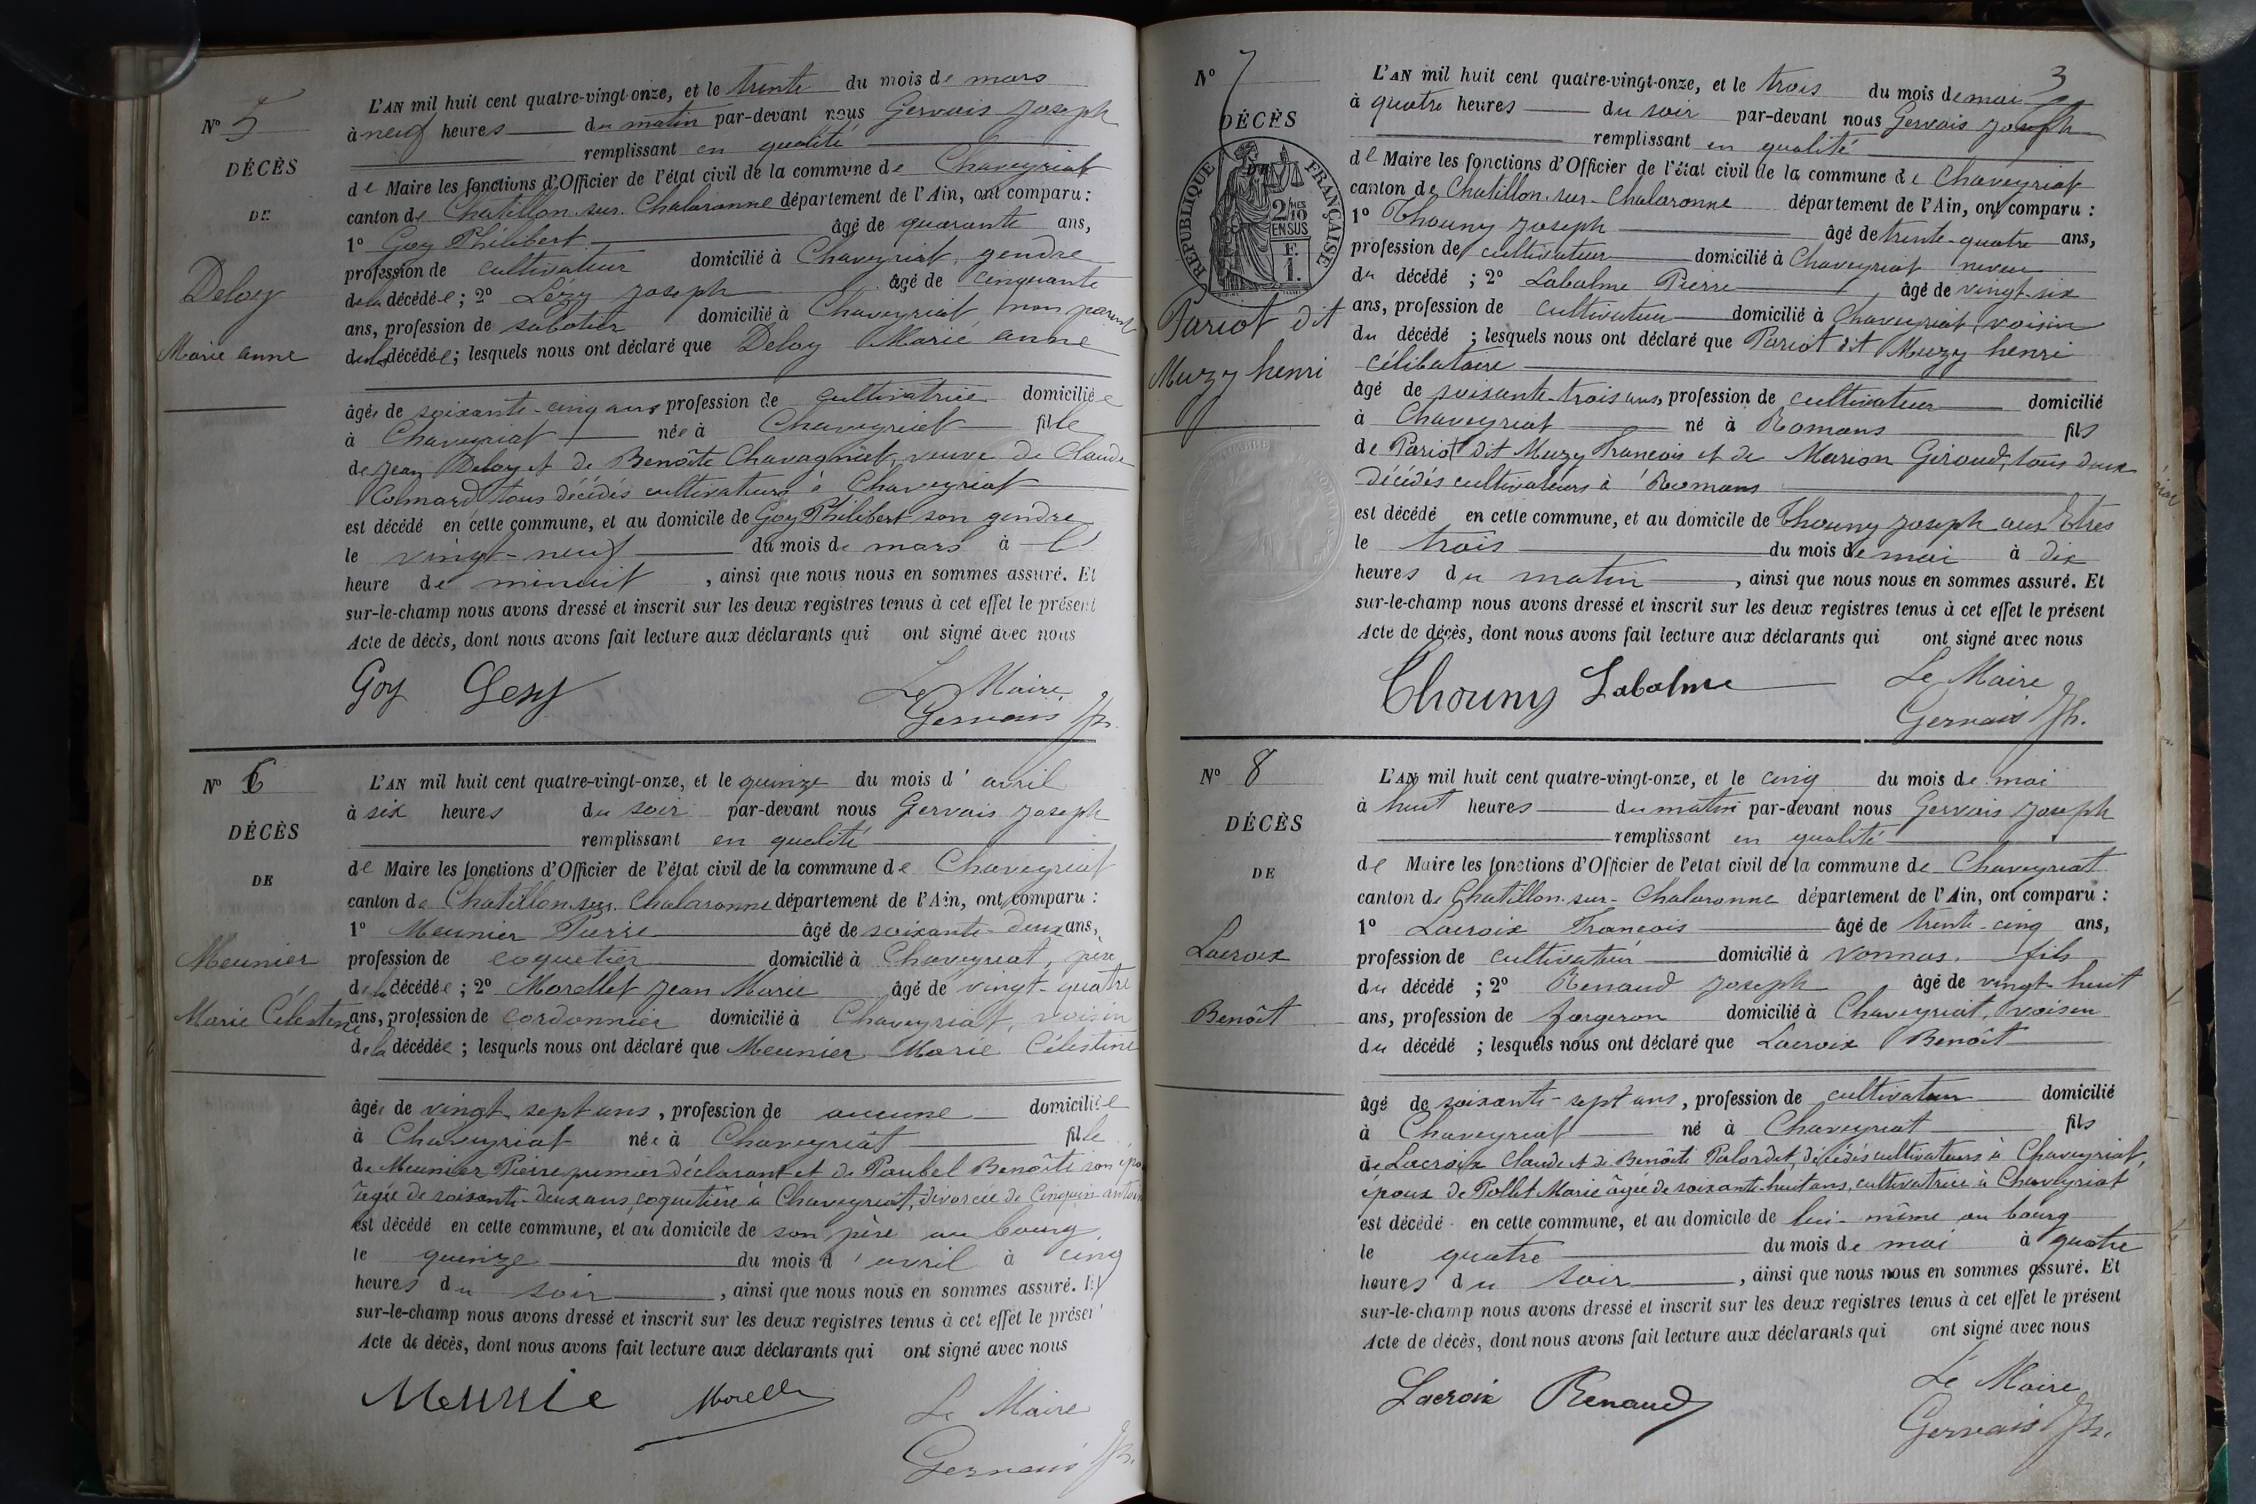 N° 5
DÉCÈS
DE
Deloy
Marie anne
L'AN mil huit cent quatre-vingt-onze, et le trente du mois de mars
à neuf heures du matin par-devant nous Gervais Joseph
remplissant en qualité
de Maire les fonctions d'Officier de l'état civil de la commune de Chaveyriat
canton de Chatillon-sur-Chalaronne département de l'Ain, ont comparu :
1° Goy Philibert âgé de quarante ans,
profession de cultivateur domicilié à Chaveyriat, gendre
de la décédée ; 2° Lézy Joseph âgé de cinquante
ans, profession de sabotier domicilié à Chaveyriat non parent
de la décédée ; lesquels nous ont déclaré que Deloy Marie anne
âgée de soixante-cinq ans profession de cultivatrice domiciliée
à Chaveyriat née à Chaveyriat fille
de Jean Deloy et de Benoîte Chavagniat, veuve de Claude
Colmard tous décédés cultivateurs à Chaveyriat
est décédé en cette commune, et au domicile de Goy Philibert son gendre
le vingt-neuf du mois de mars à l'
heure de minuit , ainsi que nous nous en sommes assuré. Et
sur-le-champ nous avons dressé et inscrit sur les deux registres tenus à cet effet le présent
Acte de décès, dont nous avons fait lecture aux déclarants qui ont signé avec nous
Goy Lesy Le Maire
Gervais Jh.
N° 6
DÉCÈS
DE
Meunier
Marie Célestine
L'AN mil huit cent quatre-vingt-onze, et le quinze du mois d'avril
à six heures du soir par-devant nous Gervais Joseph
remplissant en qualité
de Maire les fonctions d'Officier de l'état civil de la commune de Chaveyriat
canton de Chatillon-sur-Chalaronne département de l'Ain, ont comparu :
1° Meunier Pierre âgé de soixante-deux ans,
profession de coquetier domicilié à Chaveyriat, père
de la décédée ; 2° Morellet Jean Marie âgé de vingt-quatre
ans, profession de cordonnier domicilié à Chaveyriat, voisin
de la décédée ; lesquels nous ont déclaré que Meunier Marie Célestine
âgée de vingt-sept ans, profession de aucune domiciliée
à Chaveyriat née à Chaveyriat fille
de Meunier Pierre premier déclarant et de Paubel Benoîte son
âgée de soixante-deux ans, coquetière à Chaveyriat, divorcée de Cinquin
est décédé en cette commune, et au domicile de son père au bourg
le quinze du mois d'avril à cinq
heures du soir , ainsi que nous nous en sommes assuré. Et
sur-le-champ nous avons dressé et inscrit sur les deux registres tenus à cet effet le présent
Acte de décès, dont nous avons fait lecture aux déclarants qui ont signé avec nous
Meunie Morelle Le Maire
Gervais Jh.
3
N° 7
DÉCÈS
DE
RÉPUBLIQUE FRANÇAISE
2/10MES
EN SUS
F.
1.
Pariot dit
Muzy henri
L'AN mil huit cent quatre-vingt-onze, et le trois du mois de mai
à quatre heures du soir par-devant nous Gervais Joseph
remplissant en qualité
de Maire les fonctions d'Officier de l'état civil de la commune de Chaveyriat
canton de Chatillon-sur-Chalaronne département de l'Ain, ont comparu :
1° Thouny Joseph âgé de trente-quatre ans,
profession de cultivateur domicilié à Chaveyriat neveu
du décédé ; 2° Labalme Pierre âgé de vingt-six
ans, profession de cultivateur domicilié à Chaveyriat, voisin
du décédé ; lesquels nous ont déclaré que Pariot dit Muzy henri
célibataire
âgé de soixante-trois ans, profession de cultivateur domicilié
à Chaveyriat né à Romans fils
de Pariot dit Muzy Francois et de Marion Giroud, tous deux
décédés cultivateurs à Romans
est décédé en cette commune, et au domicile de Thouny Joseph aux
le trois du mois de mai à dix
heures du matin , ainsi que nous nous en sommes assuré. Et
sur-le-champ nous avons dressé et inscrit sur les deux registres tenus à cet effet le présent
Acte de décès, dont nous avons fait lecture aux déclarants qui ont signé avec nous
Chouny Labalme Le Maire
Gervais Jh.
N° 8
DÉCÈS
DE
Lacroix
Benoît
L'AN mil huit cent quatre-vingt-onze, et le cinq du mois de mai
à huit heures du matin par-devant nous Gervais Joseph
remplissant en qualité
de Maire les fonctions d'Officier de l'état civil de la commune de Chaveyriat
canton de Chatillon-sur-Chalaronne département de l'Ain, ont comparu :
1° Lacroix Francois âgé de trente-cinq ans,
profession de cultivateur domicilié à Vonnas, fils
du décédé ; 2° Renaud Joseph âgé de vingt-huit
ans, profession de forgeron domicilié à Chaveyriat, voisin
du décédé ; lesquels nous ont déclaré que Lacroix Benoît
âgé de soixante-sept ans, profession de cultivateur domicilié
à Chaveyriat né à Chaveyriat fils
de Lacroix Claude et de Benoîte Palordet, décédés cultivateurs à Chaveyriat,
époux de Pollet Marie âgée de soixante-huit ans, cultivatrice à Chaveyriat
est décédé en cette commune, et au domicile de lui-même au bourg
le quatre du mois de mai à quatre
heures du soir , ainsi que nous nous en sommes assuré. Et
sur-le-champ nous avons dressé et inscrit sur les deux registres tenus à cet effet le présent
Acte de décès, dont nous avons fait lecture aux déclarants qui ont signé avec nous
Lacroix Renaud Le Maire
Gervais Jh.